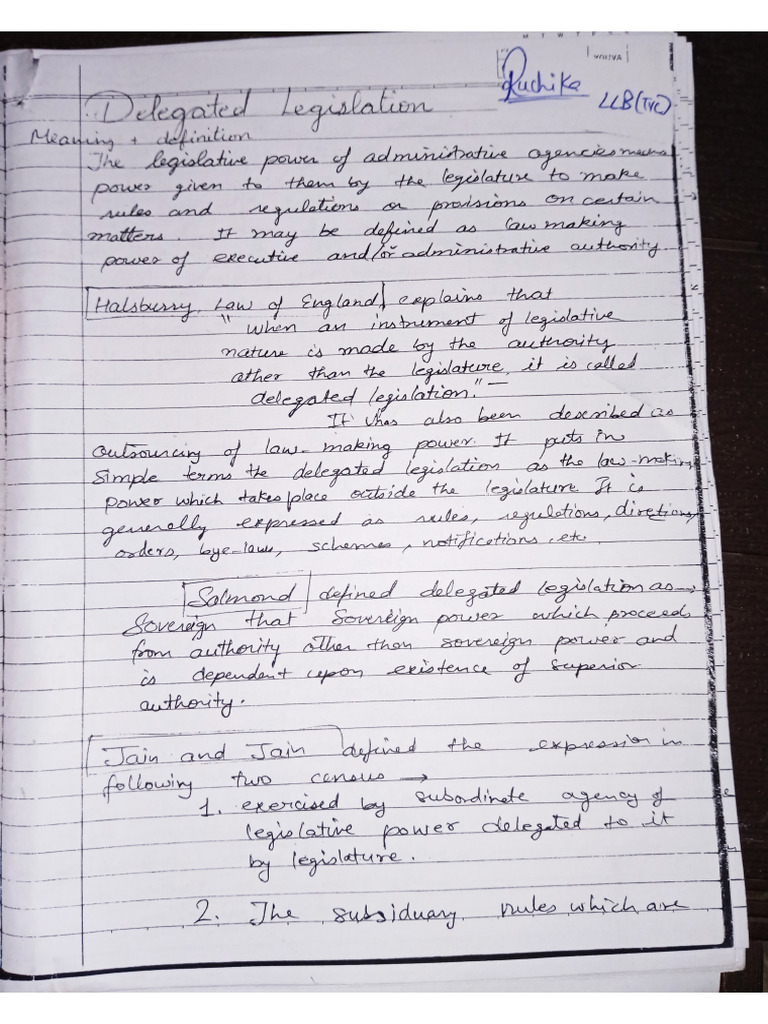 Ruchika LLB (TYC)
Delegated Legislation
Meaning + definition
The legislative power of administrative agencies means
power given to them by the legislature to make
rules and regulations or provisions on certain
matters. It may be defined as law making
power of executive and/or administrative authority
Halsburry Law of England, explains that
"when an instrument of legislative
nature is made by the authority
other than the legislature, it is called
delegated legislation." —
It has also been described as
outsourcing of law-making power. It puts in
simple terms the delegated legislation as the law-making
power which takes place outside the legislature It is
generally expressed as rules, regulations, directions,
orders, bye-laws, schemes, notifications etc.
Salmond defined delegated legislation as →
Sovereign that sovereign power which proceeds
from authority other than sovereign power and
is dependent upon existence of superior
authority.
Jain and Jain defined the expression in
following two census →
1. exercised by subordinate agency of
legislative power delegated to it
by legislature.
2. The subsiduary rules which are